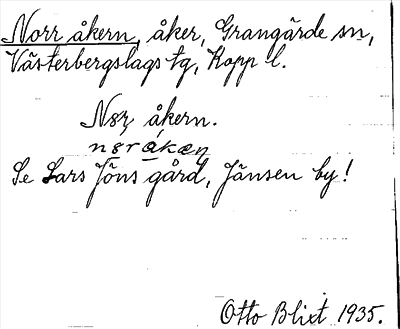 Norr åkern, åker, Grangärde sn,
Västerbergslags tg, Kopp l.
åkern.
Se Lars Jöns gård, Jänsen by!
Otto Blixt 1935.